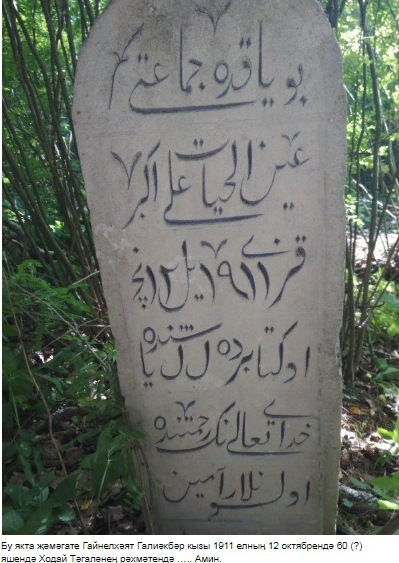 بو ياقده جماعتی
عين الحيات علی اکبر
قزی ١٩١١ يل ١٢ نچی
اوکتابرده ياشنده
خدای تعالی نک رحمتنده
اولسونلار آمين
Бу якта җәмәгате Гайнелхәят Галиәкбәр кызы 1911 елның 12 октябрендә 60 (?)
яшендә Ходай Тәгаләнең рәхмәтендә ….. Амин.